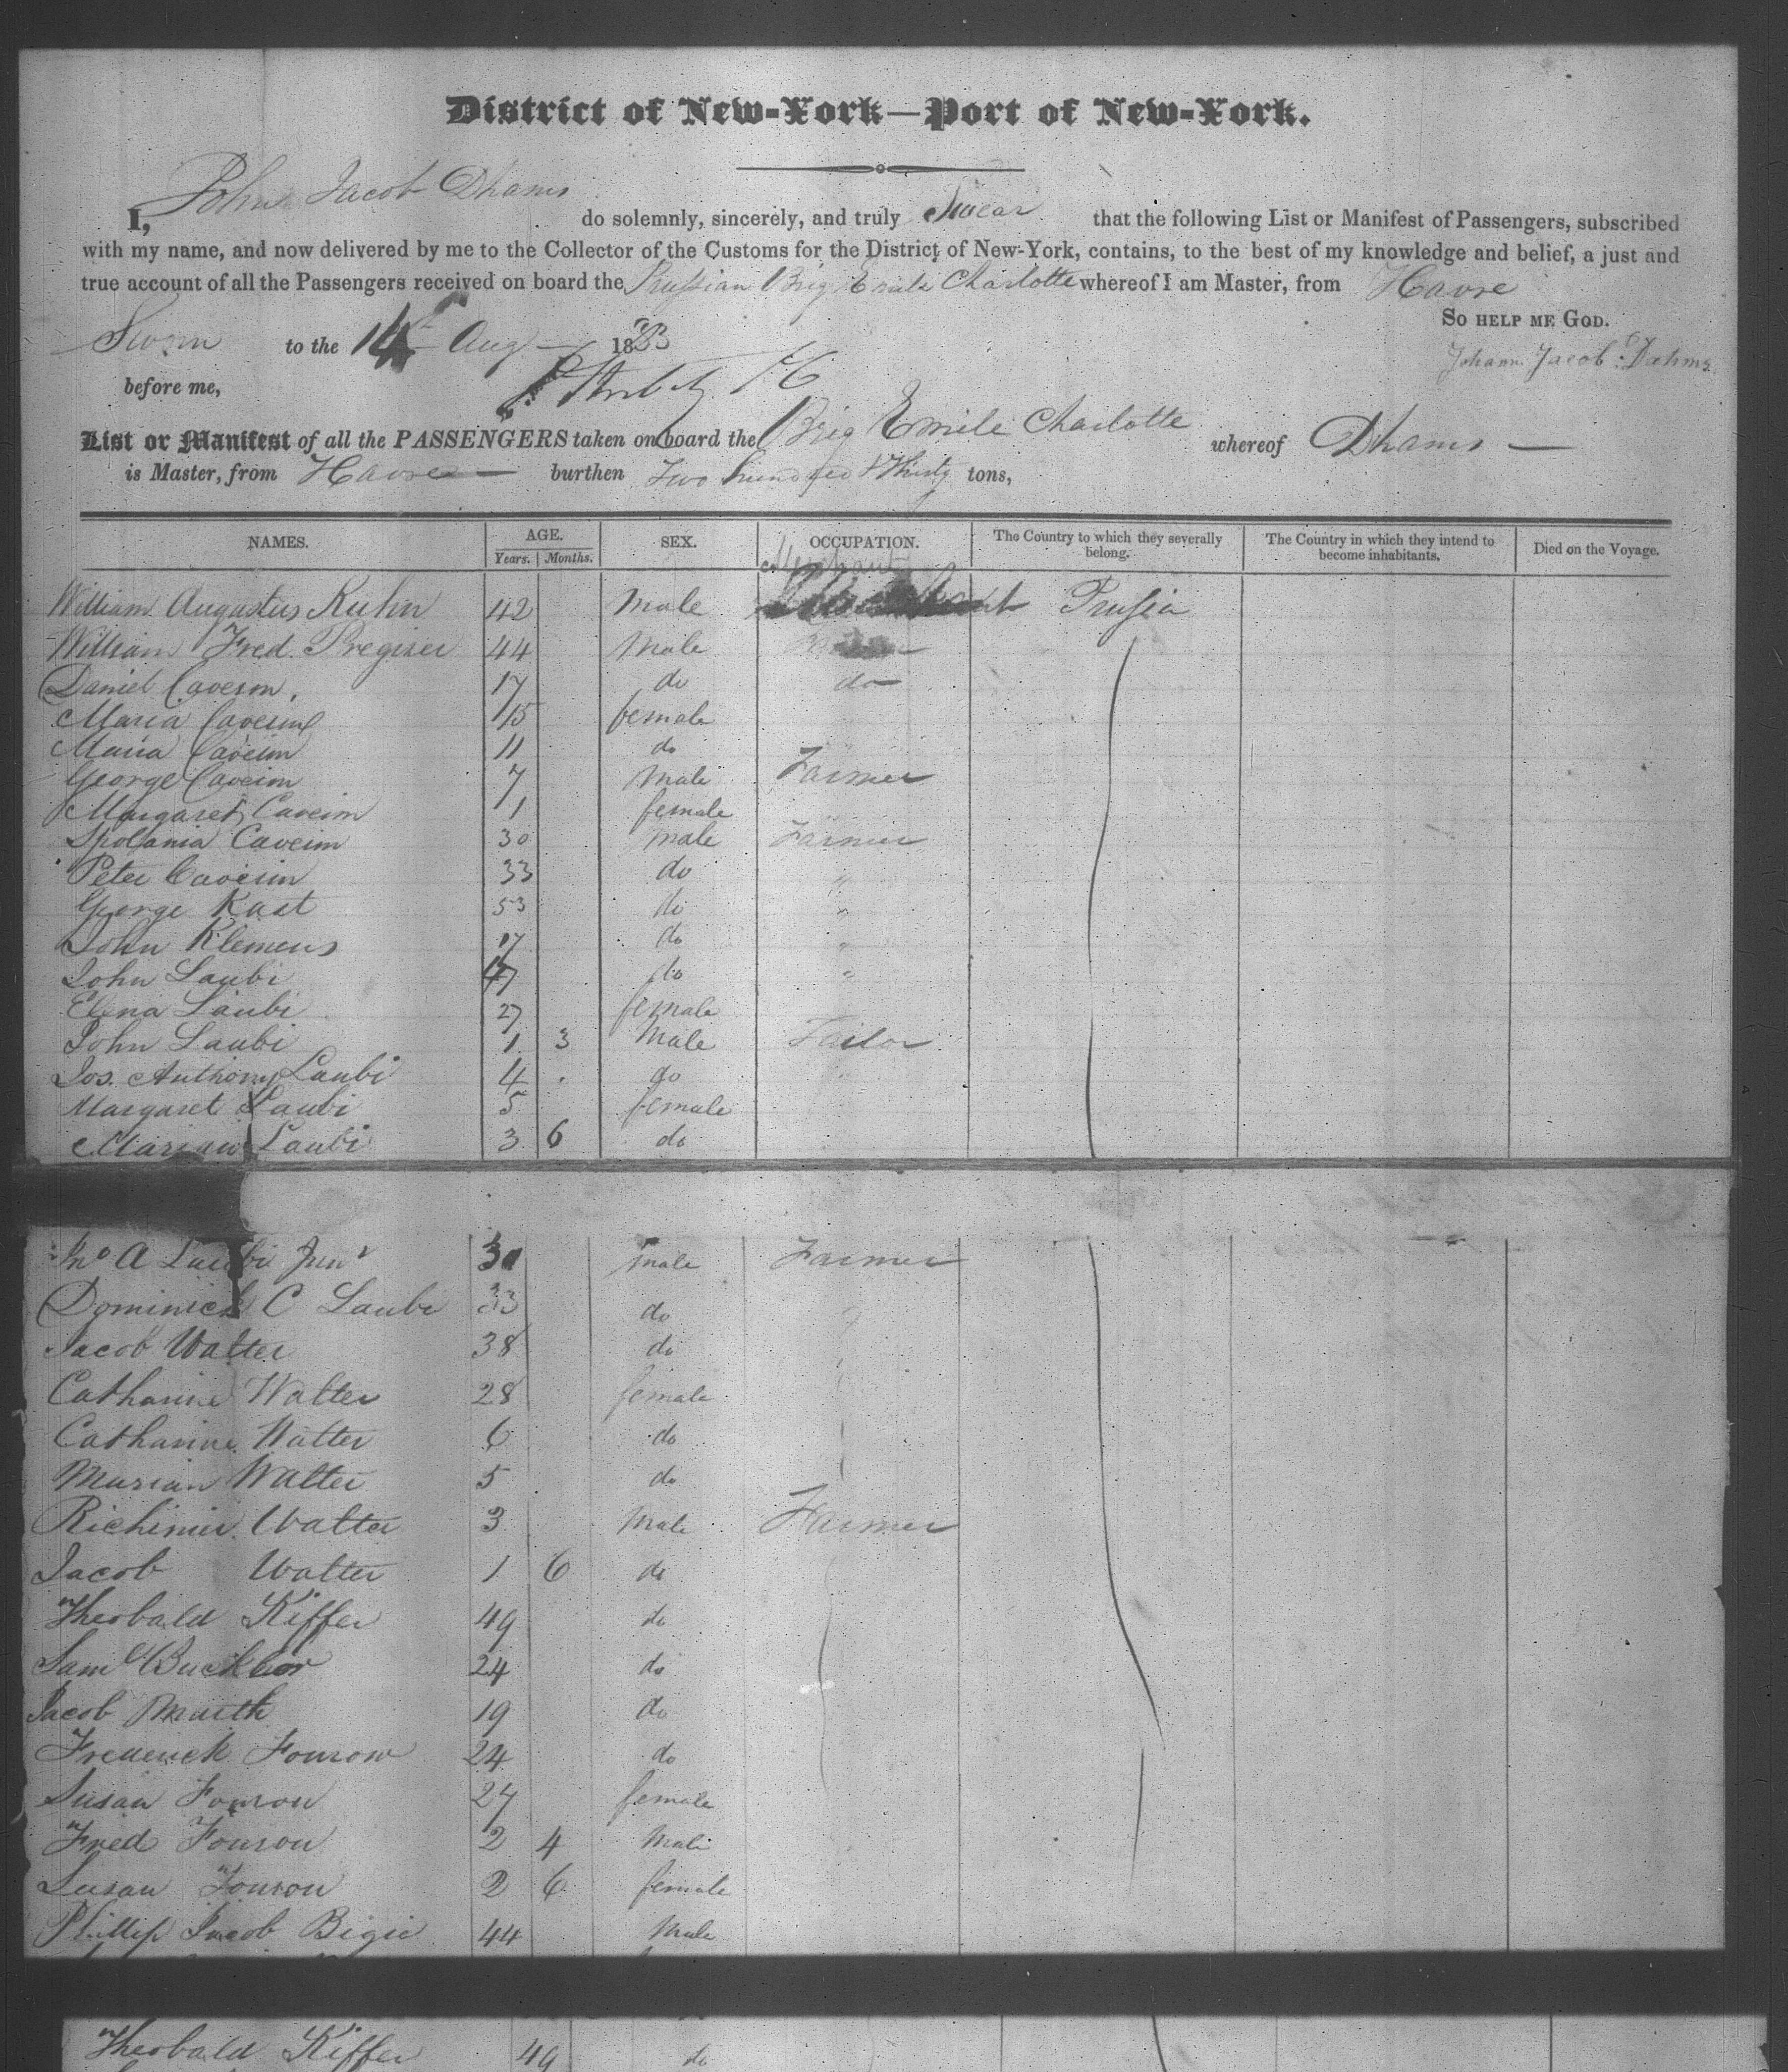 District of New-York—Port of New-York.
I, John Jacob Dhams do solemnly, sincerely, and truly Swear that the following List or Manifest of Passengers, subscribed
with my name, and now delivered by me to the Collector of the Customs for the District of New-York, contains, to the best of my knowledge and belief, a just and
true account of all the Passengers received on board the Prussian Brig Emile Charlotte whereof I am Master, from Havre
So HELP ME GOD.
Sworn to the 14th Aug 1833
Johann Jacob Dahms
before me,
List or Manifest of all the PASSENGERS taken on board the Brig Emile Charlotte whereof Dhams —
is Master, from Havre — burthen Two hundred & Thirty tons,
NAMES. AGE. Years. Months. SEX. OCCUPATION. The Country to which they severally belong. The Country in which they intend to become inhabitants. Died on the Voyage.
Merchant
William Augustus Kuhn 42 Male Prussia
William Fred. Pregizer 44 Male
Daniel Caveson. 17 do do
Maria Caveim 15 female
Maria Caveim 11 do
George Caveim 7 Male Farmer
Margaret Caveim 1 female
Apolania Caveim 30 male Farmer
Peter Caveim 33 do "
George Kast 53 do "
John Klemens 17 do "
John Laubi 47 do "
Elena Laubi 27 female
John Laubi 1 3 Male Tailor
Jos. Anthony Laubi 4 do
Margaret Laubi 5 female
Marian Laubi 3 6 do
Jno A Laubi Junr male Farmer
Dominick C Laubi 33 do
Jacob Walter 38 do
Catharine Walter 28 female
Catharine Walter 6 do
Marian Walter 5 do
Richimir Walter 3 Male Farmer
Jacob Walter 1 6 do
Theobald Kiffer 49 do
Saml Buckbor 24 do
Jacob Muth 19 do
Frederick Fourow 24 do
Susan Fourou 27 female
Fred Fourou 2 4 Male
Susan Fourou 2 6 female
Phillip Jacob Bigie 44 Male
Theobald Kiffer 49 do